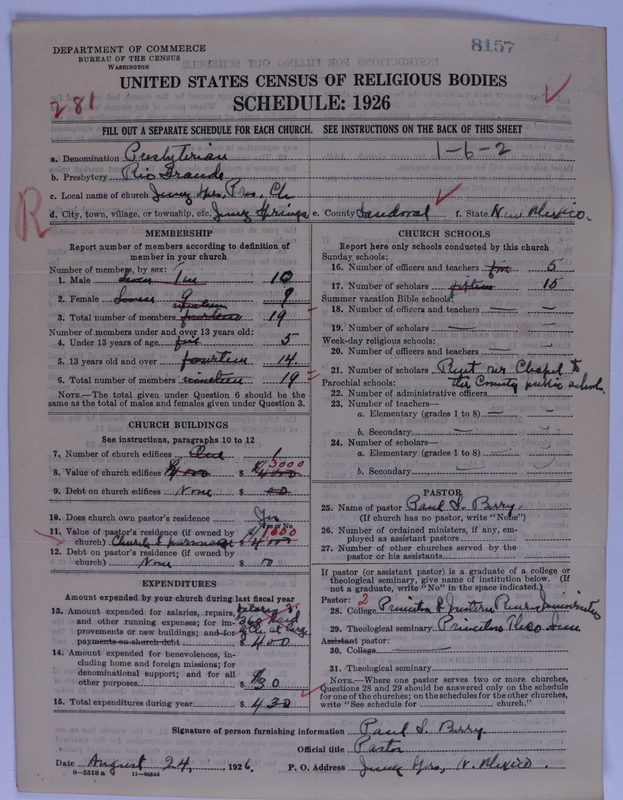 DEPARTMENT OF COMMERCE
BUREAU OF THE CENSUS
WASHINGTON
8157
UNITED STATES CENSUS OF RELIGIOUS BODIES
SCHEDULE: 1926
281
FILL OUT A SEPARATE SCHEDULE FOR EACH CHURCH. SEE INSTRUCTIONS ON THE BACK OF THIS SHEET
a. Denomination Presbyterian 1-6-2
b. Presbytery Rio Grande
c. Local name of church Jemez Sprs. Pres. Ch
d. City, town, village, or township, etc. Jemez Springs e. County Sandoval f. State New Mexico.
R
MEMBERSHIP
Report number of members according to definition of member in your church
Number of members, by sex:
1. Male Ten 10
2. Female 9 9
3. Total number of members nineteen 19
Number of members under and over 13 years old:
4. Under 13 years of age five 5
5. 13 years old and over fourteen 14
6. Total number of members nineteen 19
NOTE.—The total given under Question 6 should be the same as the total of males and females given under Question 3.
CHURCH BUILDINGS
See instructions, paragraphs 10 to 12
7. Number of church edifices One 1
8. Value of church edifices $4000 $ 4000 3000
9. Debt on church edifices None $ 00
10. Does church own pastor's residence Yes
Yes or No
11. Value of pastor's residence (if owned by church) Church & parsonage $ 1000
12. Debt on pastor's residence (if owned by church) None $ 00
EXPENDITURES
Amount expended by your church during last fiscal year
13. Amount expended for salaries, repairs, and other running expenses; for improvements or new buildings; and for payments on church debt $ 400
14. Amount expended for benevolences, including home and foreign missions; for denominational support; and for all other purposes $ 30
15. Total expenditures during year $ 430
CHURCH SCHOOLS
Report here only schools conducted by this church
Sunday schools:
16. Number of officers and teachers five 5
17. Number of scholars fifteen 15
Summer vacation Bible schools:
18. Number of officers and teachers —
19. Number of scholars —
Week-day religious schools:
20. Number of officers and teachers —
21. Number of scholars Rent our Chapel to
the County public schools
Parochial schools:
22. Number of administrative officers
23. Number of teachers—
a. Elementary (grades 1 to 8) —
b. Secondary
24. Number of scholars—
a. Elementary (grades 1 to 8)
b. Secondary
PASTOR
25. Name of pastor Paul S. Berry
(If church has no pastor, write "None")
26. Number of ordained ministers, if any, employed as assistant pastors
27. Number of other churches served by the pastor or his assistants
If pastor (or assistant pastor) is a graduate of a college or theological seminary, give name of institution below. (If not a graduate, write "No" in the space indicated.)
Pastor: 2
28. College
29. Theological seminary Princeton Theo. Sem
Assistant pastor:
30. College
31. Theological seminary
NOTE.—Where one pastor serves two or more churches, Questions 28 and 29 should be answered only on the schedule for one of the churches; on the schedules for the other churches, write "See schedule for ............ church."
Signature of person furnishing information Paul S. Berry
Official title Pastor
Date August 24, 1926. P. O. Address Jemez Sprs, N. Mexico.
8-5518 a